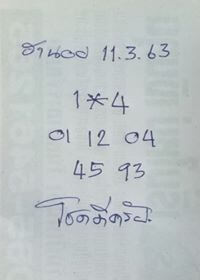 ฮานอย 11.3.63
1*4
01 12 04
45 93
โชคดีครับ